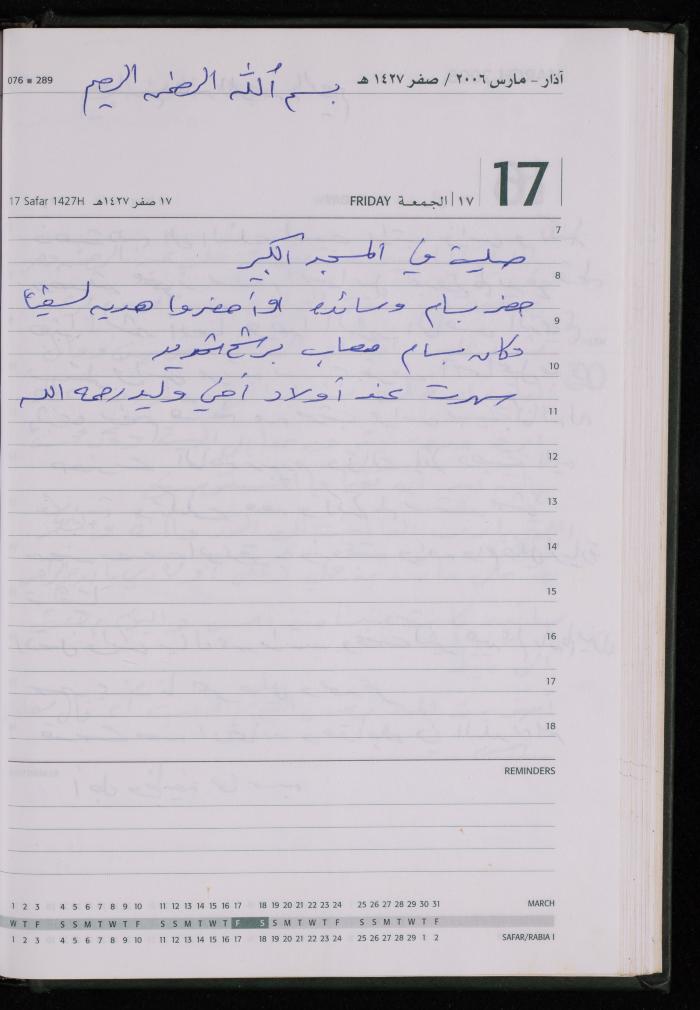 076 ■ 289
بسم الله الرحمن الرحيم
آذار - مارس ٢٠٠٦ / صفر ١٤٢٧ هـ
17
17 Safar 1427H
١٧ صفر ١٤٢٧هـ
FRIDAY الجمعة ١٧
7
صليت في المسجد الكبير
8
حضر بسام وسائده وأحضروا هديه
9
وكان بسام مصاب برشح شديد
10
سهرت عند أولاد أخي وليد رحمه الله
11
12
13
14
15
16
17
18
REMINDERS
1 2 3 4 5 6 7 8 9 10 11 12 13 14 15 16 17 18 19 20 21 22 23 24 25 26 27 28 29 30 31 MARCH
W T F S S M T W T F S S M T W T F S S M T W T F S S M T W T F
1 2 3 4 5 6 7 8 9 10 11 12 13 14 15 16 17 18 19 20 21 22 23 24 25 26 27 28 29 1 2 SAFAR/RABIA I